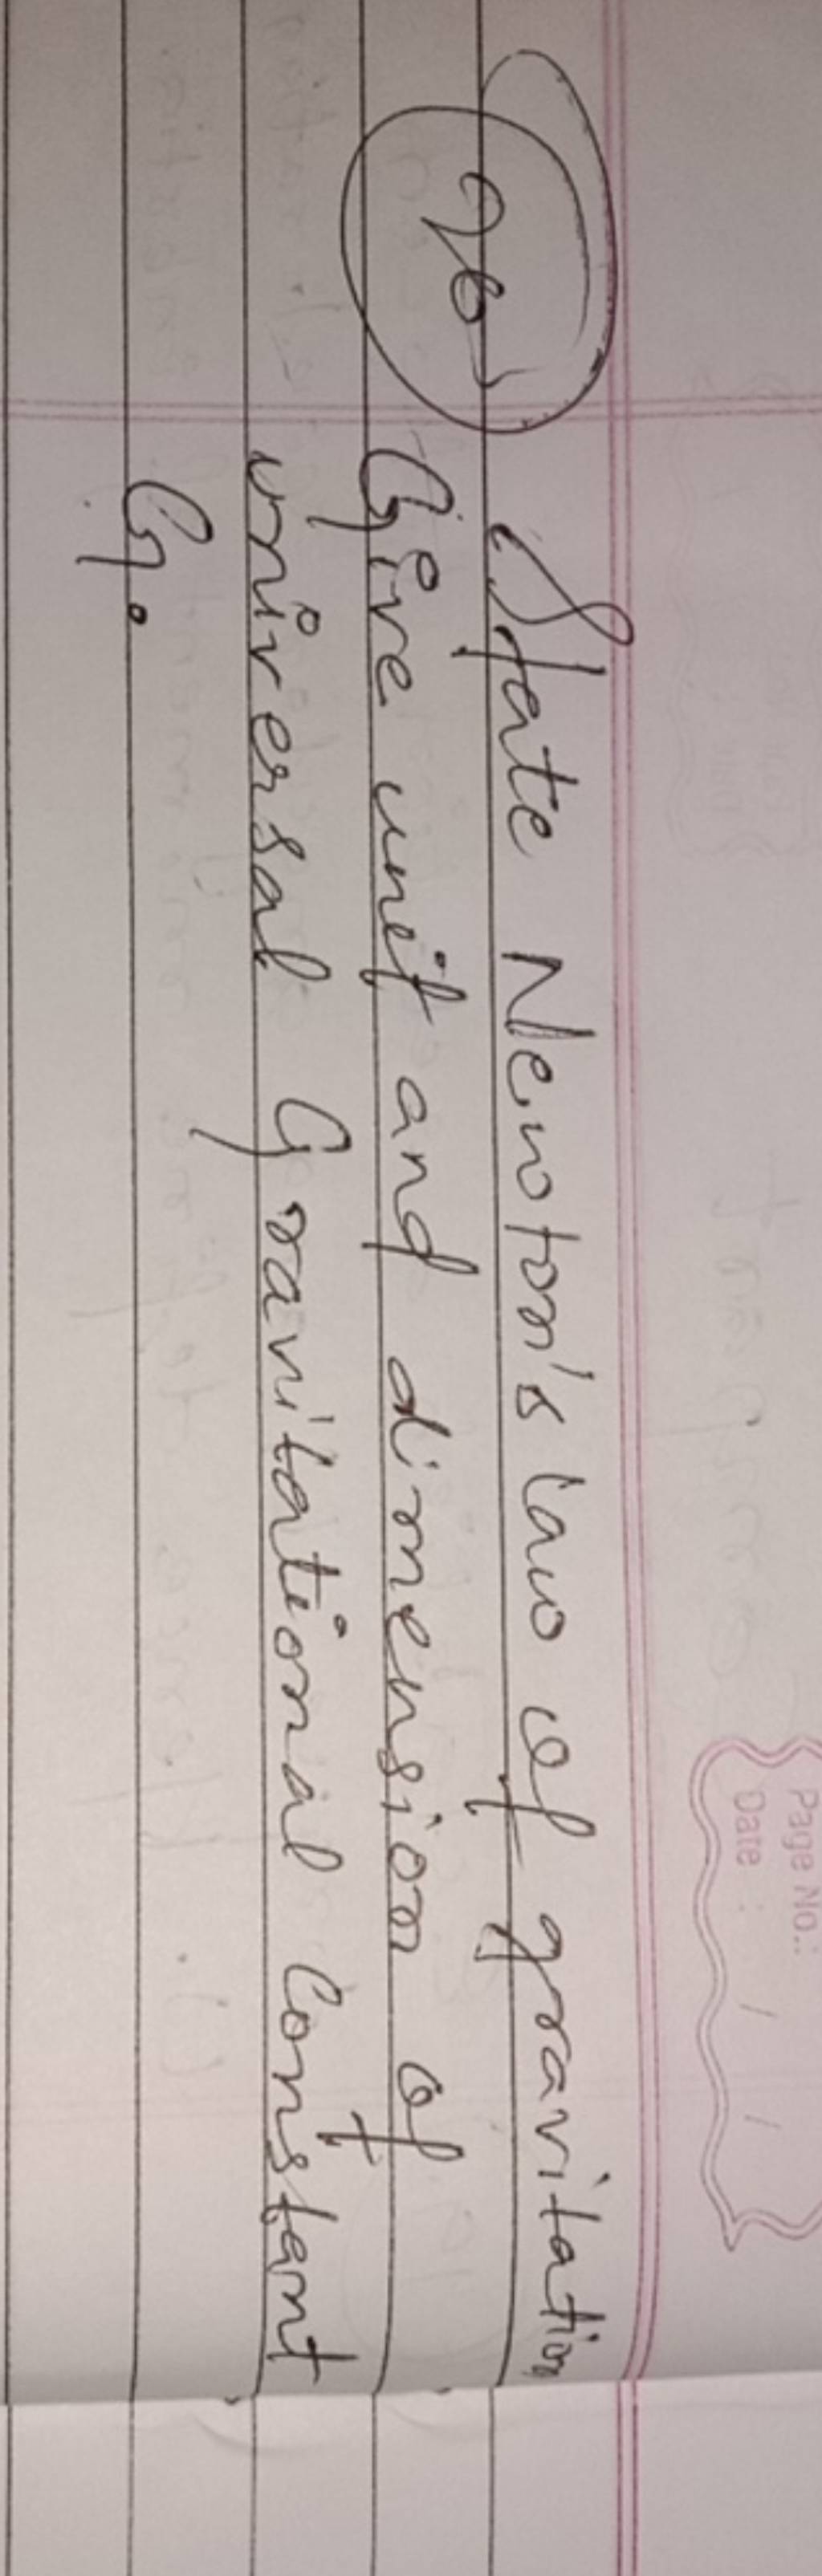 Page No.:
Date : / /
26) State Newton's law of gravitation
Give unit and dimension of
universal Gravitational Constant
G.